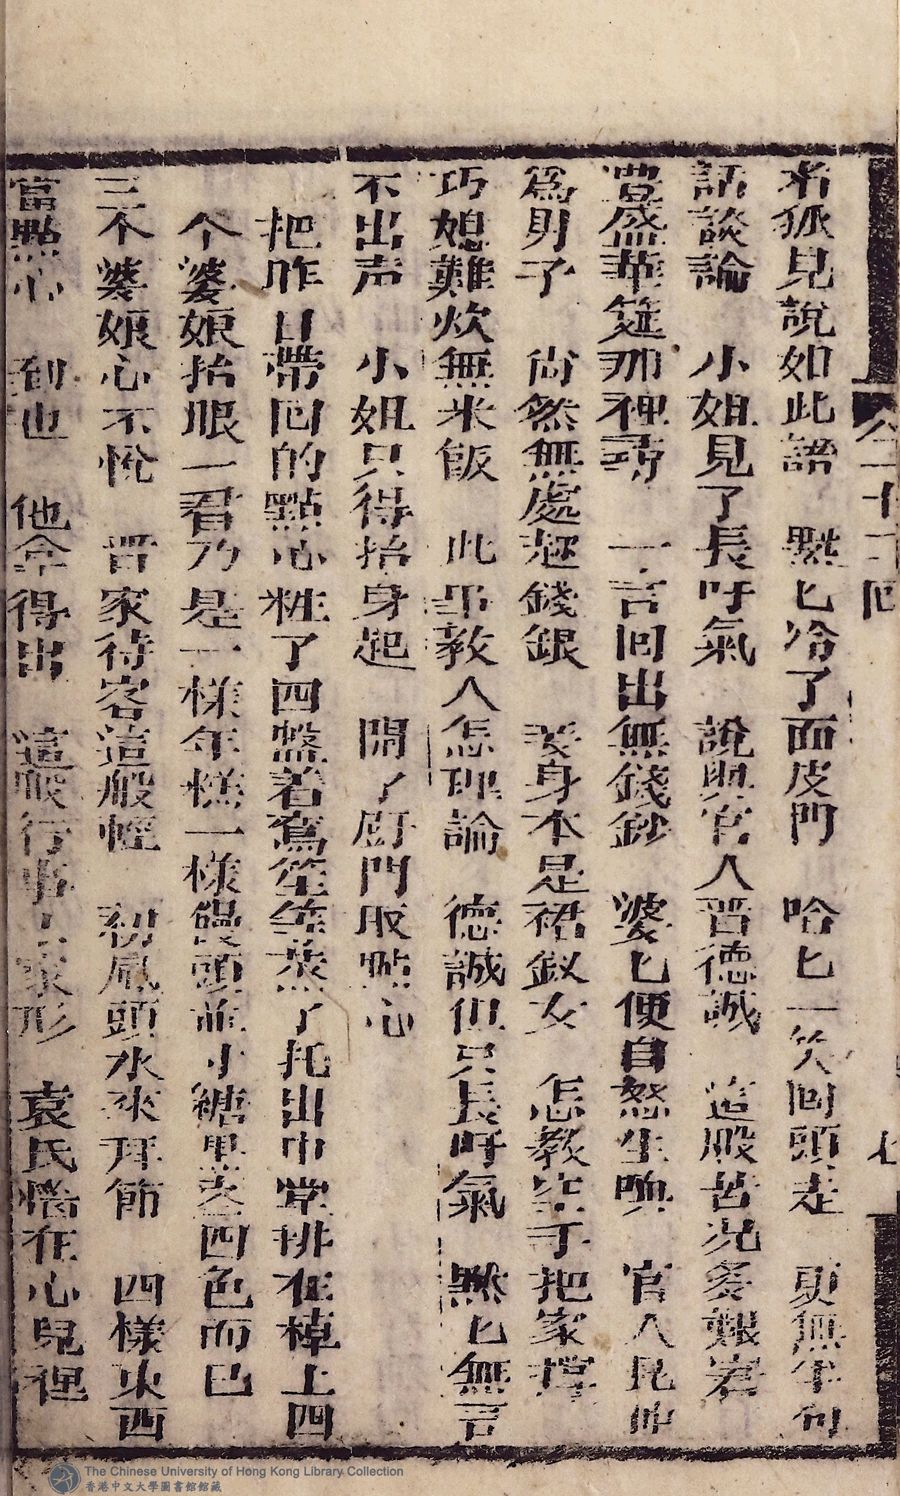 名狐見說如此語　默匕冷了面皮門　哈匕一笑回頭走　更無半句
話談論　小姐見了長吁氣　說與官人晋德誠　這般苦况多艱窘
豊盛華筵那裡尋　一言回出無錢鈔　婆匕便自怒生嗔　官人昆仲
為男子　尚然無處趂錢銀　妾身本是裙釵女　怎教空手把家撐
巧媳難炊無米飯　此事教人怎理論　德誠但只長吁氣　默匕無言
不出声　小姐只得抬身起　開了厨門取點心
把昨日帶回的點心粧了四盤着鴛笙等蒸了托出中堂排在棹上四
个婆娘抬眼一看乃是一樣年糕一樣饅頭並小糖果　四色而已
三个婆娘心不悅　晋家待客這般輕　初凮頭水來拜節　四樣東西
當點心　到也　他拿得出　這般行事　家形　袁氏惱在心兒裡
全　十二回
七
The Chinese University of Hong Kong Library Collection
香港中文大學圖書館館藏